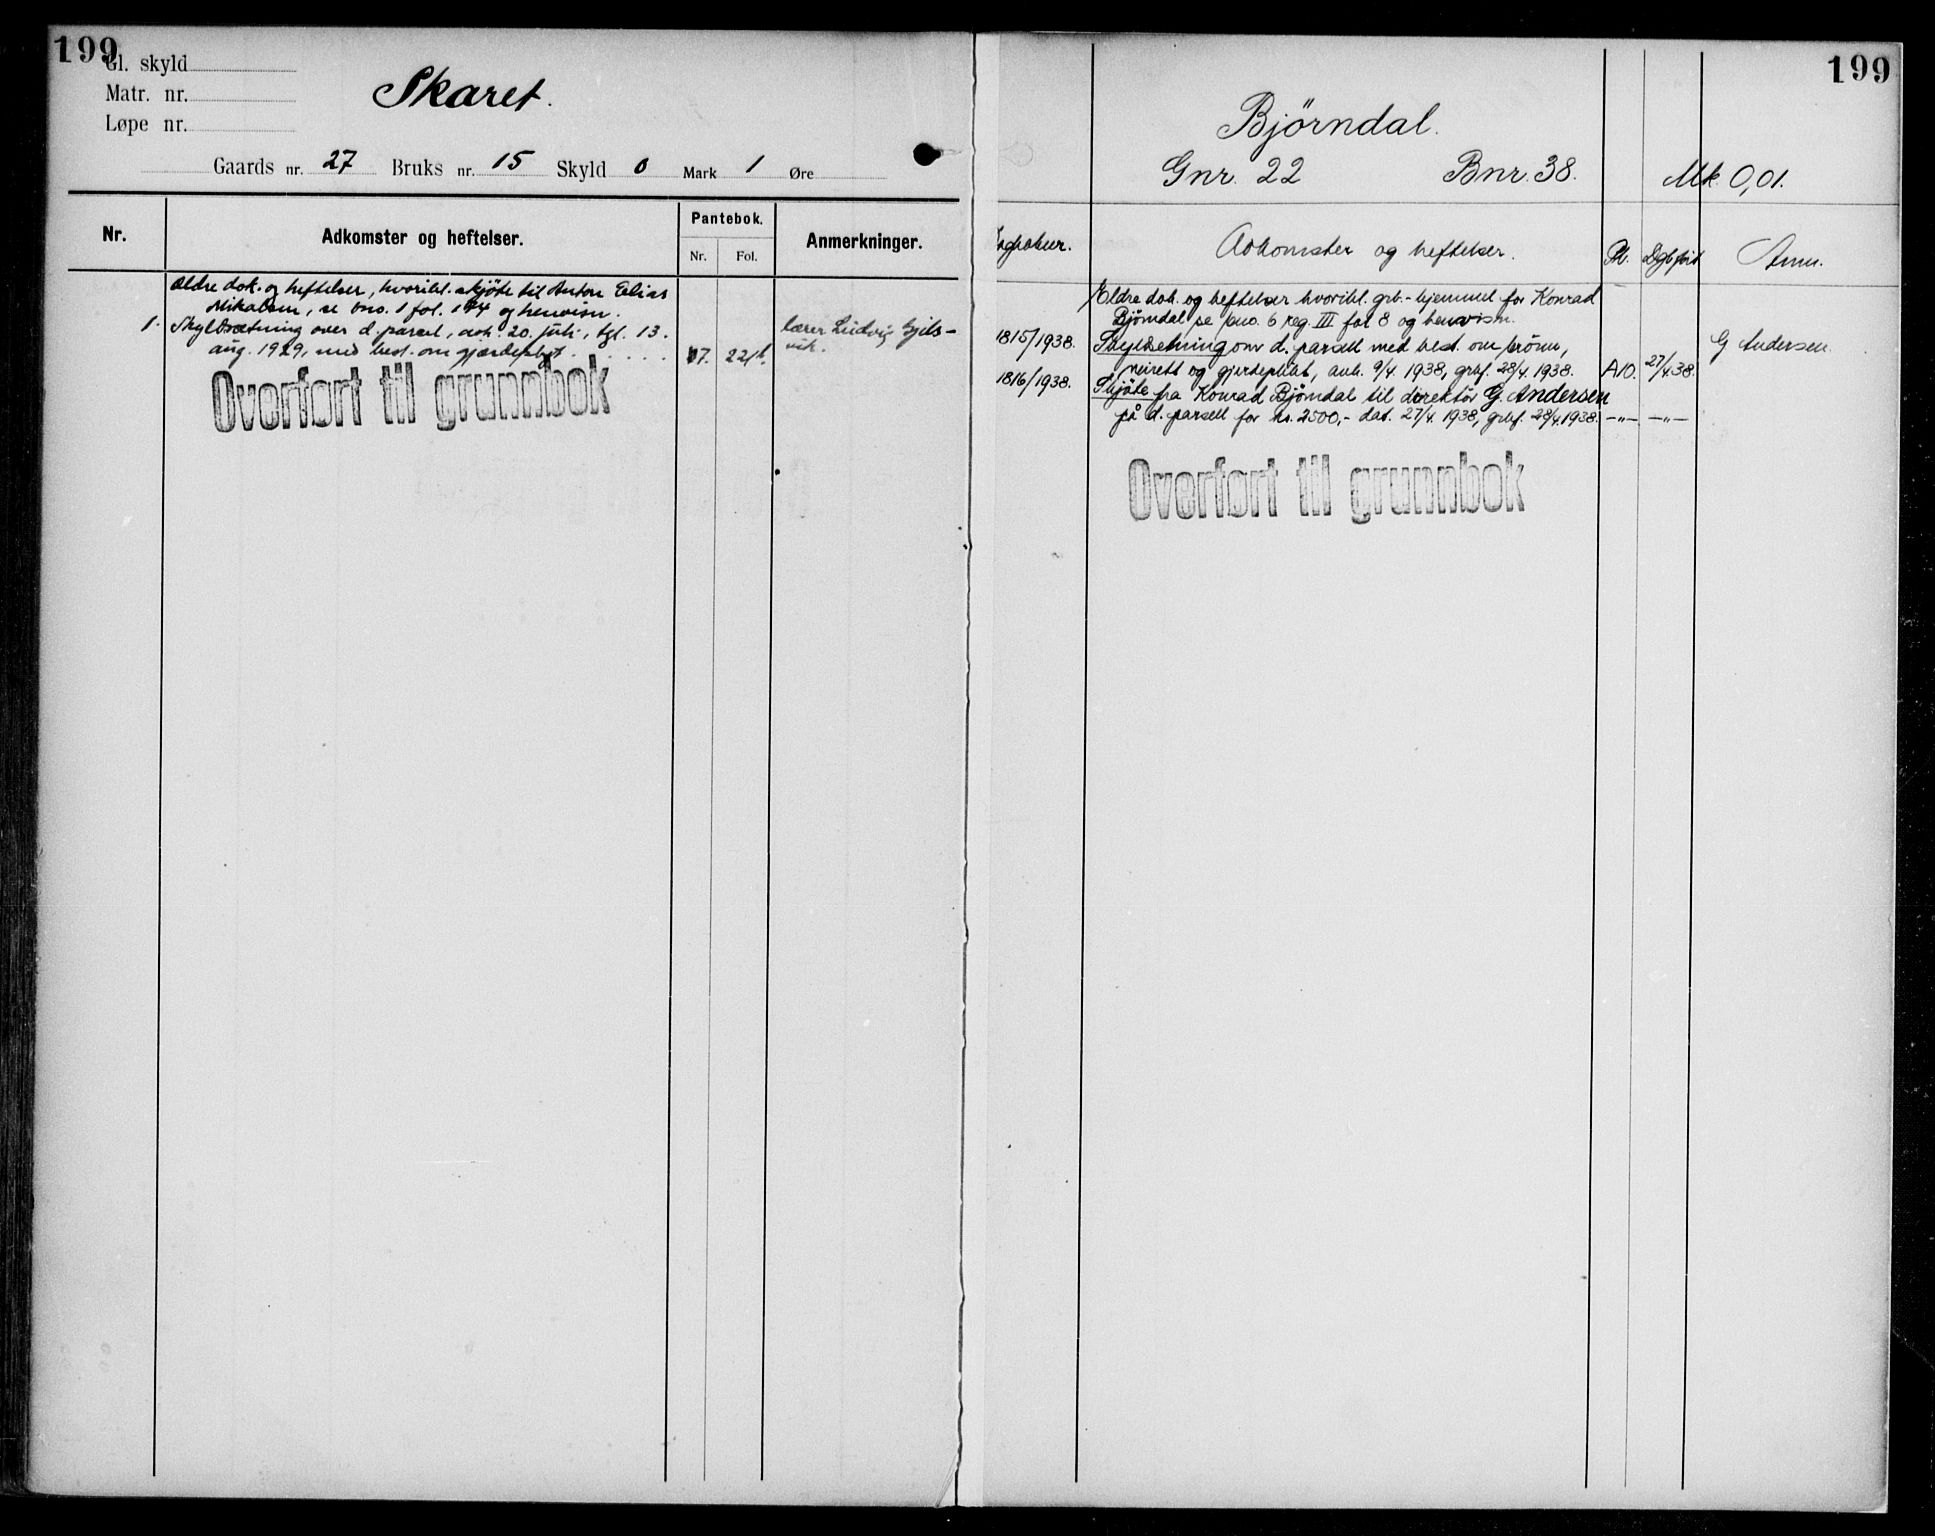 199
Gl. skyld
Matr. nr.
Løpe nr.
Skaret.
Gaards nr. 27 Bruks nr. 15 Skyld 0 Mark 1 Øre
Nr.
Adkomster og heftelser.
Pantebok.
Nr. Fol.
Anmerkninger.
Ældre dok. og heftelser, hvoribl. skjöte til Anton Elias
Mikalsen, se bno. 1 fol. 174 og henvisn.
1. Skyldsætning over d. parcel, avh. 20. juli, tgl. 13.
aug. 1929, med best. om gjærdepligt 17. 221b.
lærer Ludvig Gjels-
vik.
Overført til grunnbok
199
Bjørndal.
Gnr. 22 Bnr. 38. Mk. 0,01.
Dagboknr.
Adkomster og heftelser.
Pb. Dgbført Anm.
Eldre dok. og heftelser hvoribl. grb.-hjemmel for Konrad
Bjørndal se bno. 6 reg. III fol 8 og henvisn.
1815/1938. Skyldsetning over d. parsell med best. om brönn,
veirett og gjerdeplikt, avh. 9/4. 1938, grbf. 28/4. 1938. A10. 27/4.38.
G Andersen.
1816/1938. Skjöte fra Konrad Bjørndal til direktör G. Andersen
på d. parsell for kr. 2500,- dat. 27/4. 1938, grbf. 28/4.1938. —"— —"—
Overført til grunnbok